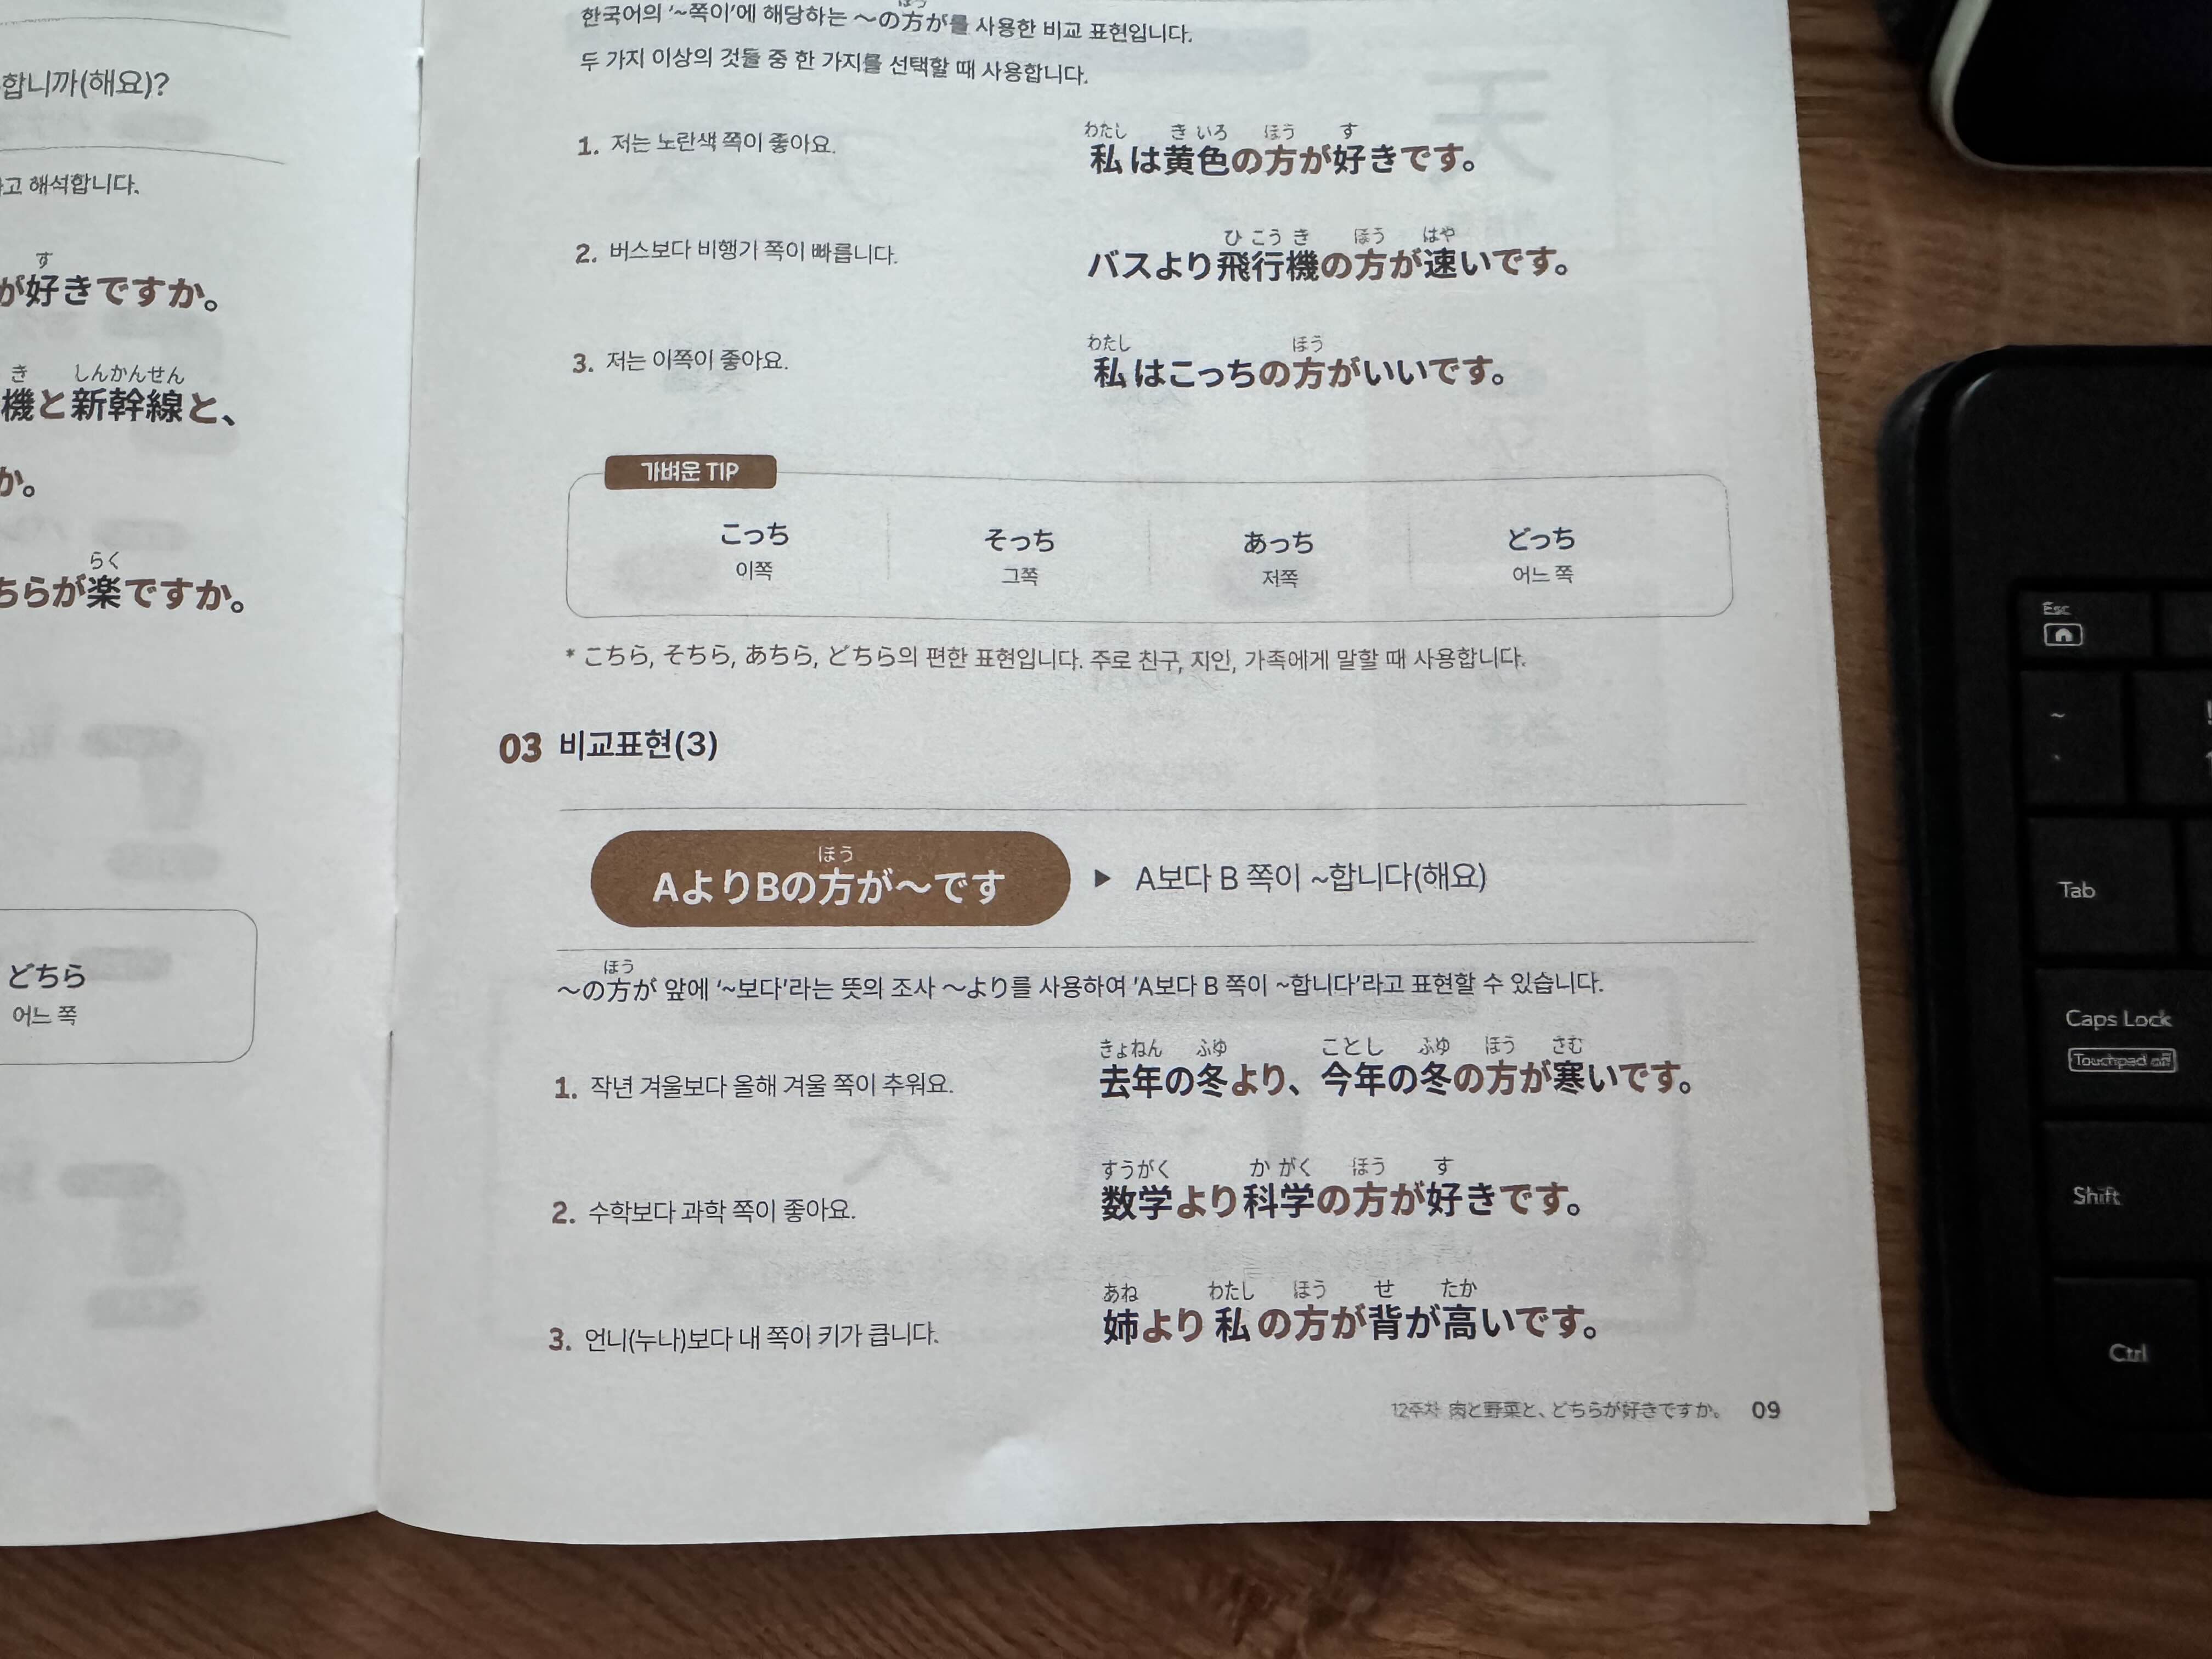 합니까(해요)?
고 해석합니다.
す
が好きですか。
き しんかんせん
機と新幹線と、
か。
らく
ちらが楽ですか。
どちら
어느 쪽
한국어의 '~쪽이'에 해당하는 ~の方が를 사용한 비교 표현입니다.
두 가지 이상의 것들 중 한 가지를 선택할 때 사용합니다.
わたし き いろ ほう す
1. 저는 노란색 쪽이 좋아요. 私は黄色の方が好きです。
ひ こう き ほう はや
2. 버스보다 비행기 쪽이 빠릅니다. バスより飛行機の方が速いです。
わたし ほう
3. 저는 이쪽이 좋아요. 私はこっちの方がいいです。
가벼운 TIP
こっち そっち あっち どっち
이쪽 그쪽 저쪽 어느 쪽
* こちら, そちら, あちら, どちら의 편한 표현입니다. 주로 친구, 지인, 가족에게 말할 때 사용합니다.
03 비교표현(3)
ほう
AよりBの方が〜です ▶ A보다 B 쪽이 ~합니다(해요)
ほう
〜の方が 앞에 '~보다'라는 뜻의 조사 〜より를 사용하여 'A보다 B 쪽이 ~합니다'라고 표현할 수 있습니다.
きょねん ふゆ ことし ふゆ ほう さむ
1. 작년 겨울보다 올해 겨울 쪽이 추워요. 去年の冬より、今年の冬の方が寒いです。
すうがく か がく ほう す
2. 수학보다 과학 쪽이 좋아요. 数学より科学の方が好きです。
あね わたし ほう せ たか
3. 언니(누나)보다 내 쪽이 키가 큽니다. 姉より私の方が背が高いです。
12주차 肉と野菜と、どちらが好きですか。 09
Esc
~
`
Tab
Caps Lock
Touchpad off
Shift
Ctrl